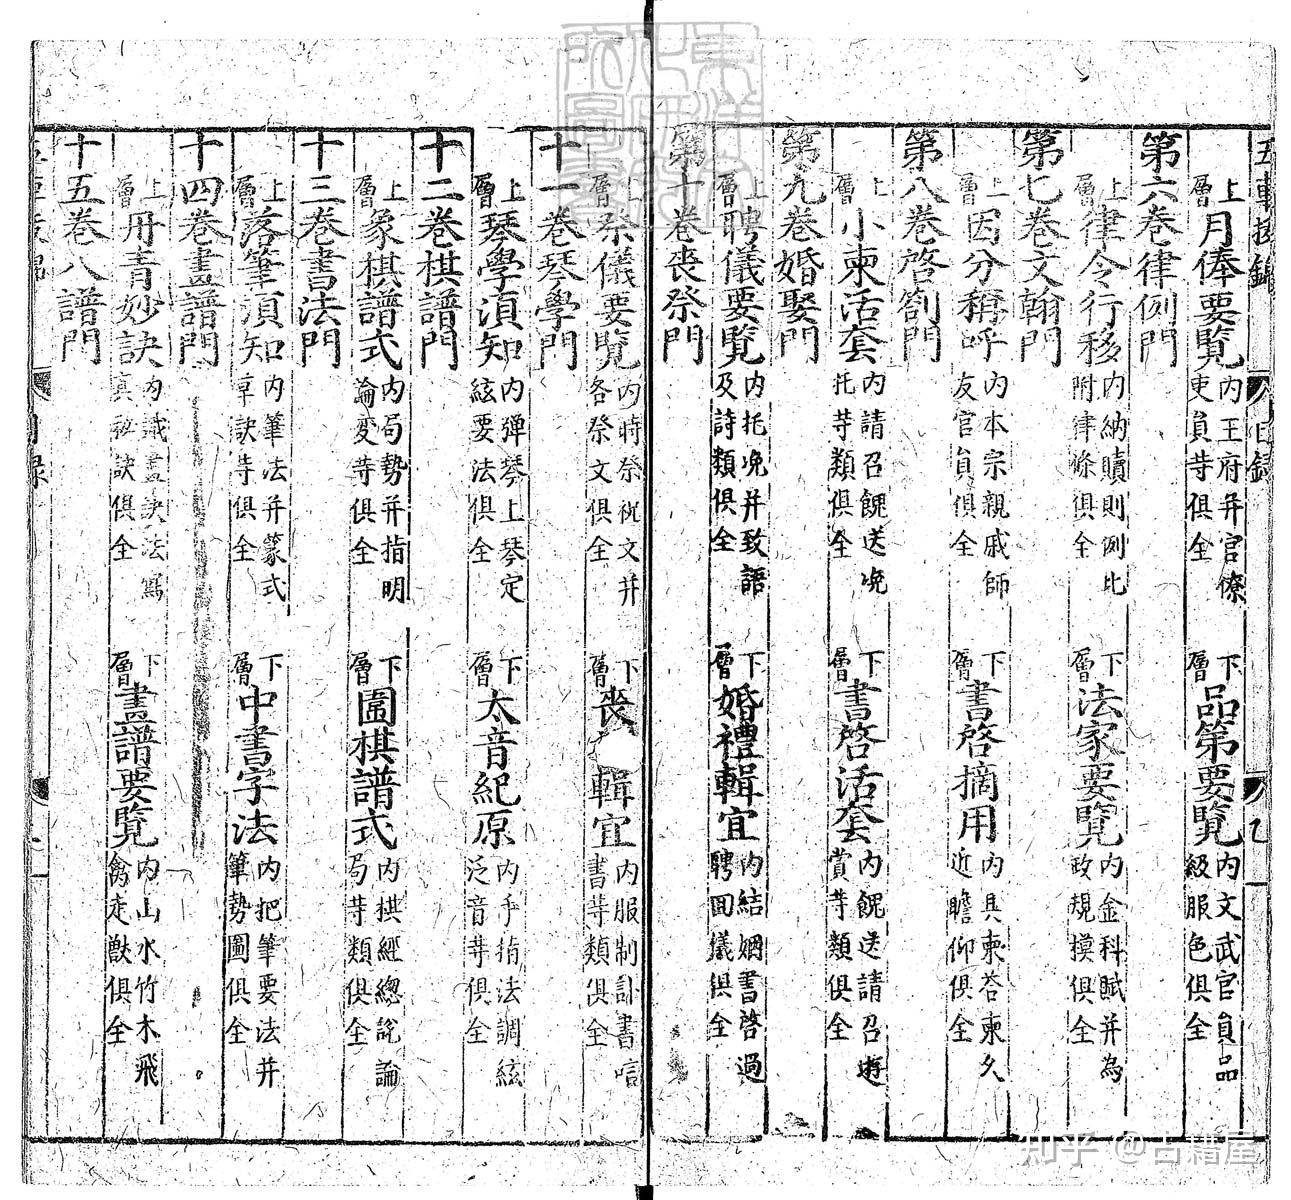 五車拔錦 目錄 乙
上層 月俸要覽 內王府并官僚吏員䓁俱全 下層 品第要覽 內文武官員品級服色俱全
第六卷律例門
上層 律令行移 內納贖則例比附律條俱全 下層 法家要覽 內金科賦并為政規模俱全
第七卷文翰門
上層 因分稱呼 內本宗親戚師友官員俱全 下層 書啓摘用 內具柬荅柬久近瞻仰俱全
第八卷啓劄門
上層 小柬活套 內請召餽送晚托䓁類俱全 下層 書啓活套 內餽送請召遊賞䓁類俱全
第九卷婚娶門
上層 聘儀要覽 內托晚并致語及詩類俱全 下層 婚禮輯宜 內結姻書啓過聘回儀俱全
第十卷丧祭門
上層 祭儀要覽 內時祭祝文并各祭文俱全 下層 丧 輯宜 內服制訃書唁書䓁類俱全
十一卷琴學門
上層 琴學須知 內彈琴上琴定絃要法俱全 下層 太音紀原 內手指法調絃泛音䓁俱全
十二卷棋譜門
上層 象棋譜式 內局勢并指明論变䓁俱全 下層 圍棋譜式 內棋經總說論局䓁類俱全
十三卷書法門
上層 落筆須知 內筆法并篆式草訣䓁俱全 下層 中書字法 內把筆要法并筆勢圖俱全
十四卷畫譜門
上層 丹青妙訣 內識畫訣法寫真秘訣俱全 下層 畫譜要覽 內山水竹木飛禽走獸俱全
十五卷八譜門
目錄
知乎 @古籍屋